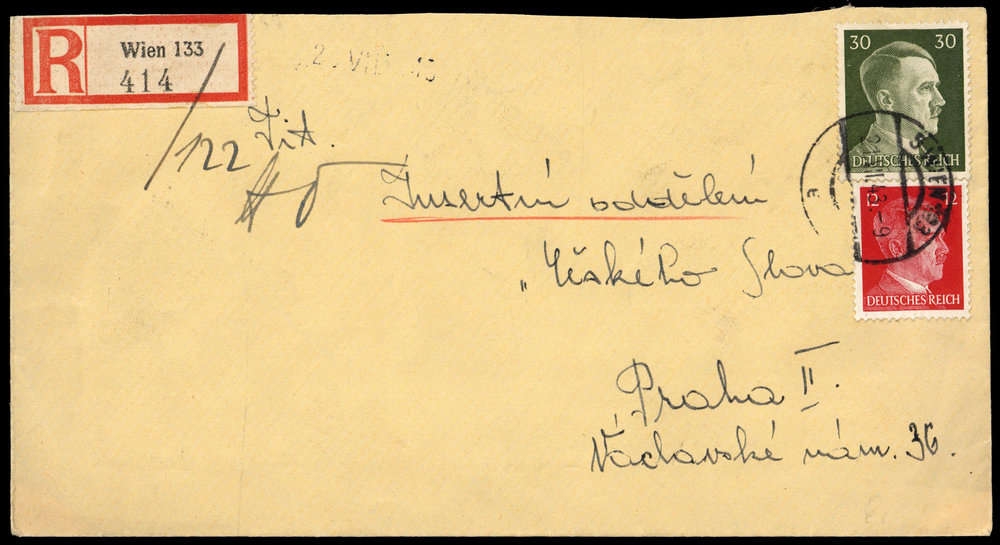 R Wien 133
414
30 30
DEUTSCHES REICH
12 12
DEUTSCHES REICH
122
Insertní oddělení
„Českého Slova
Praha II.
Václavské nám. 36.